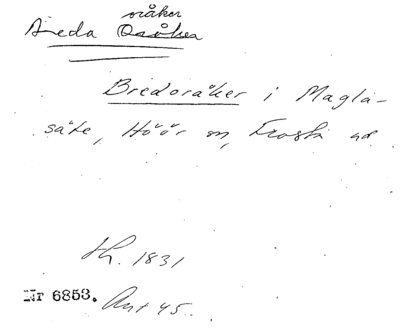 oråker
Breda Osåker
Bredoråker i Magla-
säte, Höör sn, Frosta hd
h. 1831
Nr 6853. Ant 45.